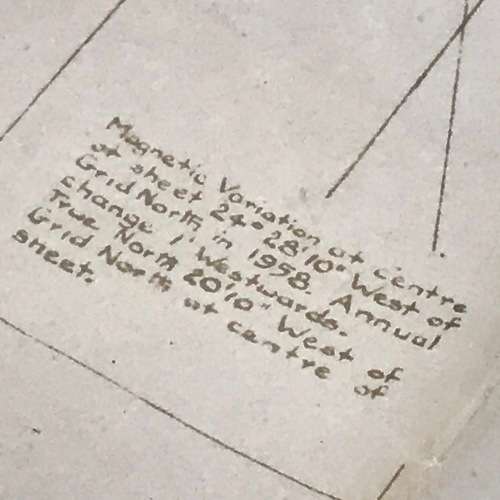 Magnetic Variation at Centre
of sheet 24° 28' 10" West of
Grid North in 1958. Annual
change 1' Westwards.
True North 20' 10" West of
Grid North at centre of
sheet.